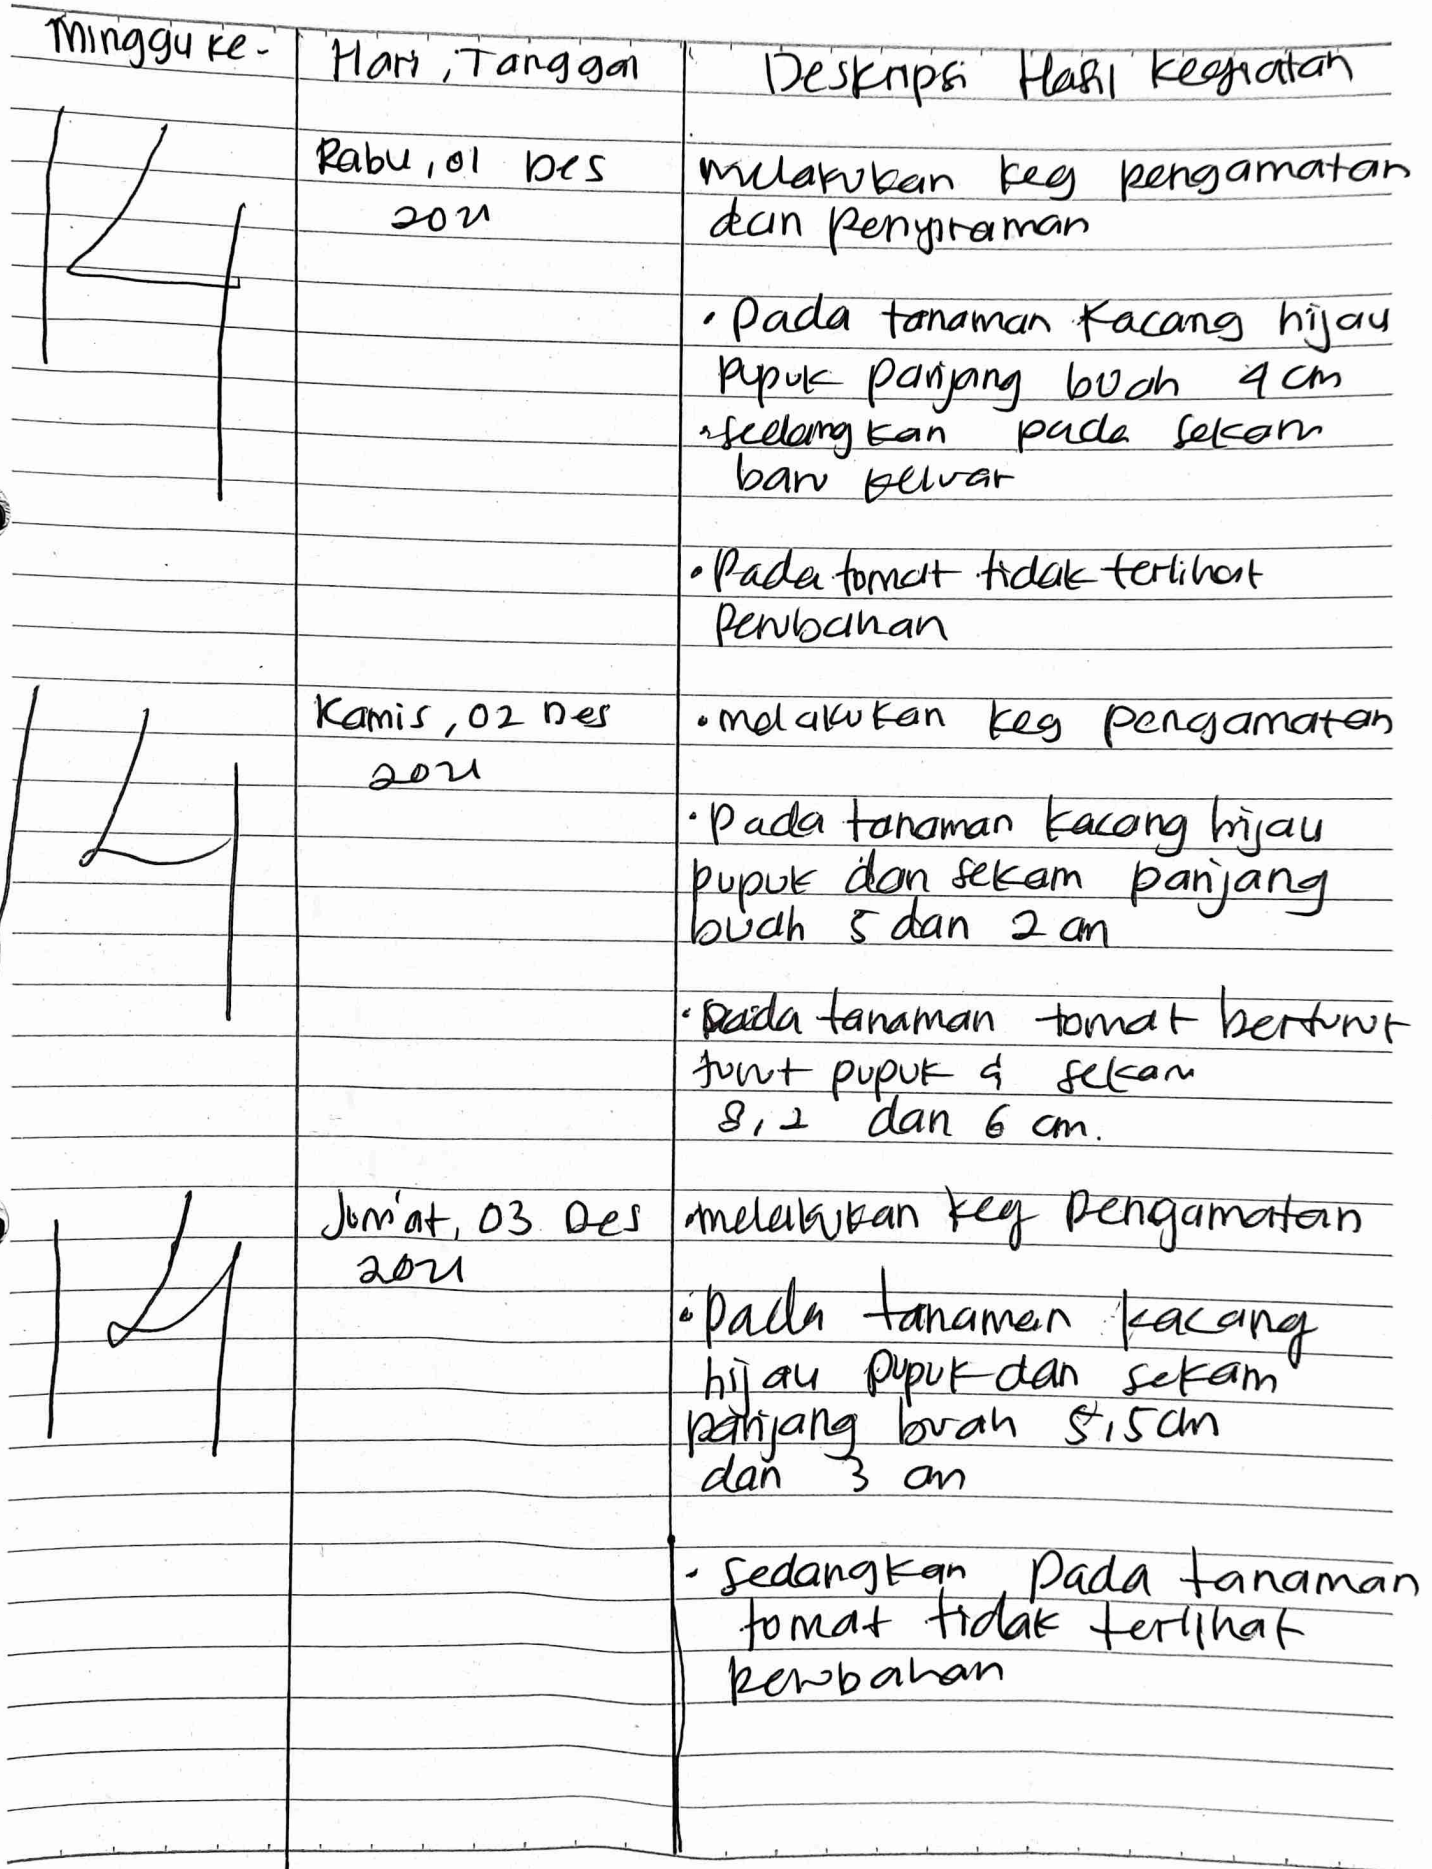 Minggu ke-
Hari, Tanggal
Deskripsi Hasil Kegiatan
14
Rabu, 01 Des
2021
melakukan keg pengamatan
dan penyiraman
• Pada tanaman Kacang hijau
pupuk panjang buah 4 cm
• sedangkan pada sekam
baru keluar
• Pada tomat tidak terlihat
Perubahan
14
Kamis, 02 Des
2021
• melakukan keg pengamatan
• Pada tanaman kacang hijau
pupuk dan sekam panjang
buah 5 dan 2 cm
• pada tanaman tomat berturut
turut pupuk & sekam
8,2 dan 6 cm.
14
Jum'at, 03 Des
2021
• melakukan keg Pengamatan
• Pada tanaman kacang
hijau pupuk dan sekam
panjang buah 5,5 cm
dan 3 cm
• sedangkan Pada tanaman
tomat tidak terlihat
perubahan